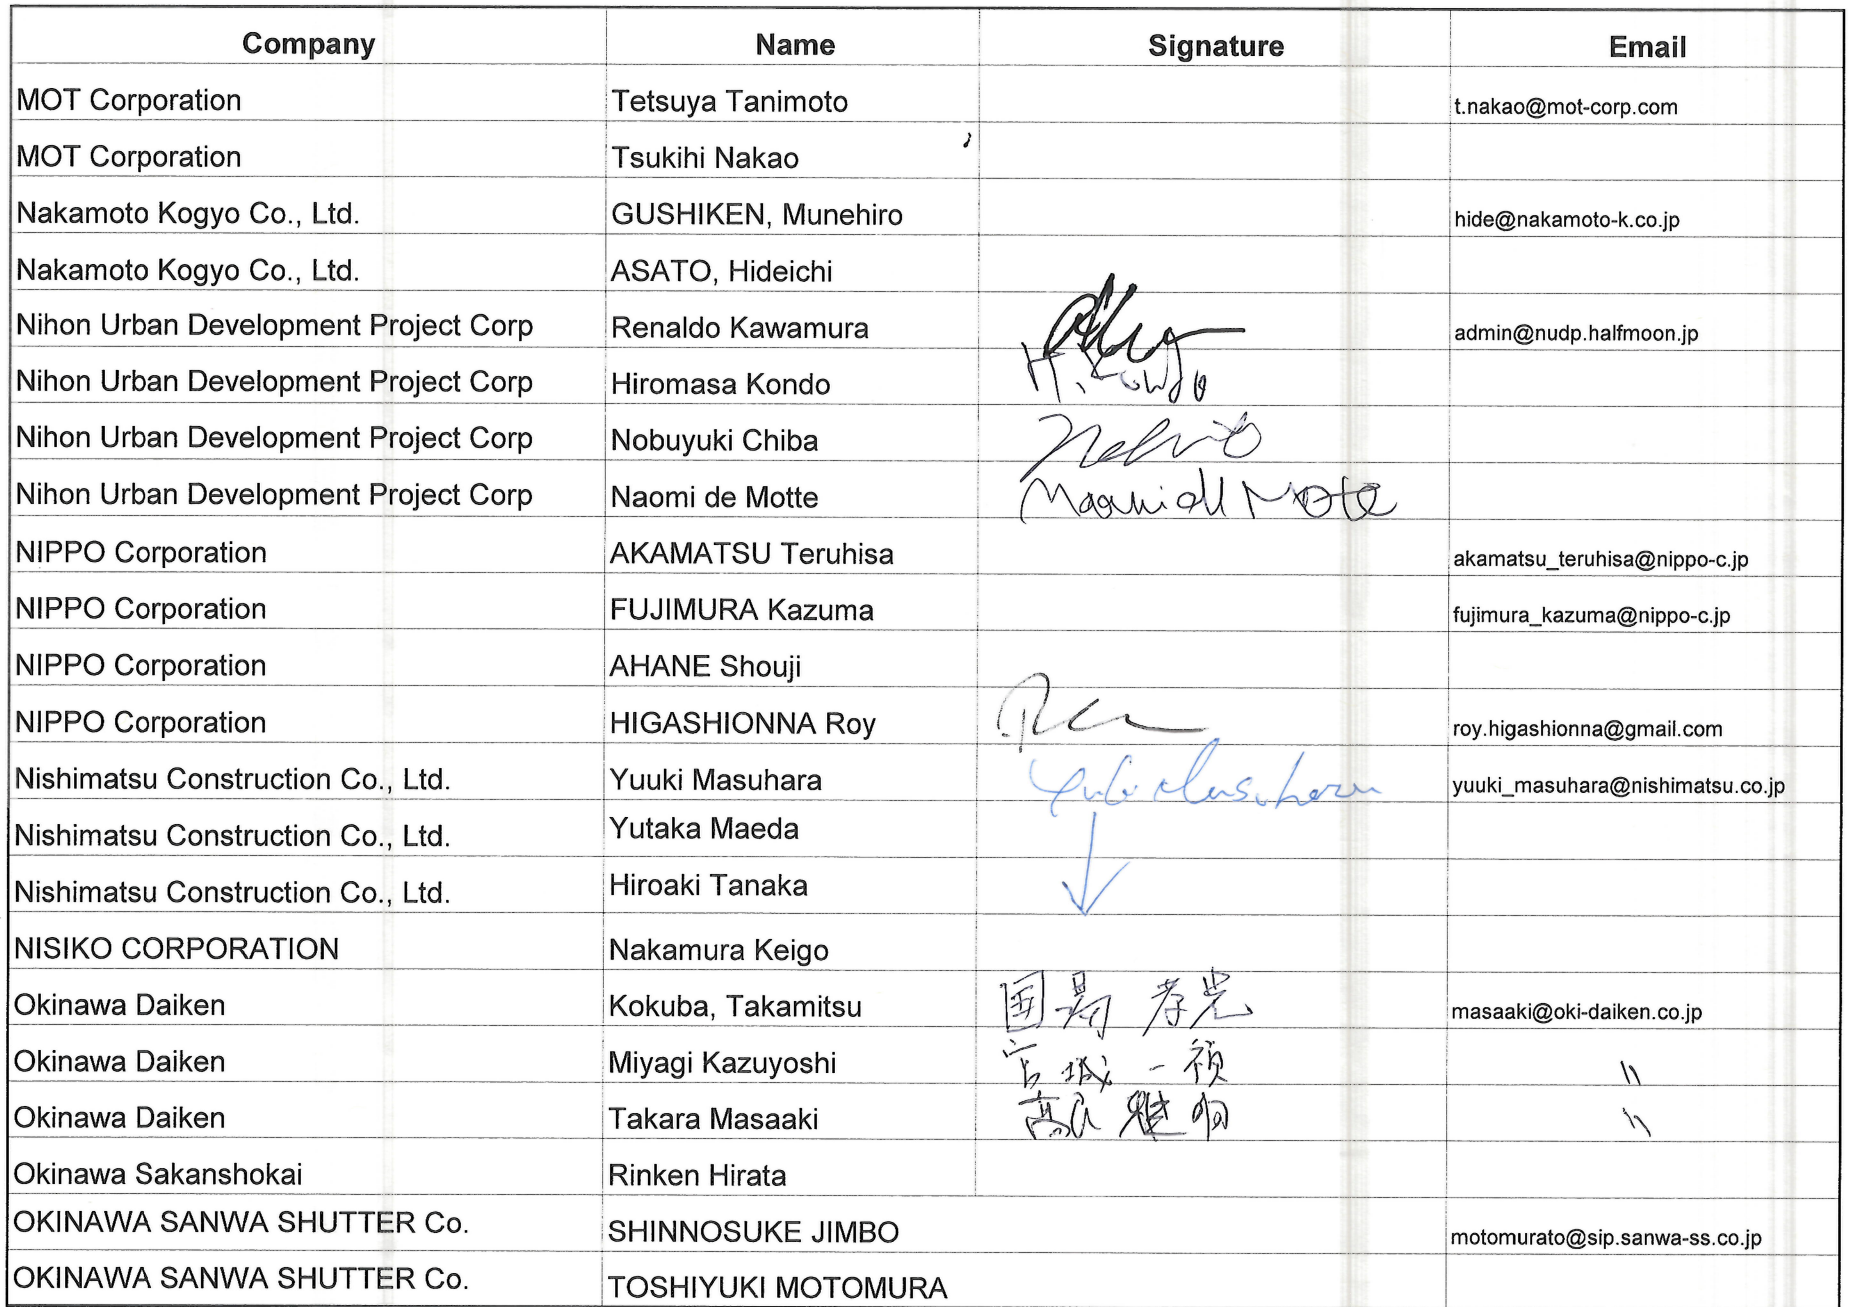 Company Name Signature Email
MOT Corporation Tetsuya Tanimoto t.nakao@mot-corp.com
MOT Corporation Tsukihi Nakao
Nakamoto Kogyo Co., Ltd. GUSHIKEN, Munehiro hide@nakamoto-k.co.jp
Nakamoto Kogyo Co., Ltd. ASATO, Hideichi
Nihon Urban Development Project Corp Renaldo Kawamura admin@nudp.halfmoon.jp
Nihon Urban Development Project Corp Hiromasa Kondo H. Kondo
Nihon Urban Development Project Corp Nobuyuki Chiba
Nihon Urban Development Project Corp Naomi de Motte
NIPPO Corporation AKAMATSU Teruhisa akamatsu_teruhisa@nippo-c.jp
NIPPO Corporation FUJIMURA Kazuma fujimura_kazuma@nippo-c.jp
NIPPO Corporation AHANE Shouji
NIPPO Corporation HIGASHIONNA Roy roy.higashionna@gmail.com
Nishimatsu Construction Co., Ltd. Yuuki Masuhara Yuki Masuhara yuuki_masuhara@nishimatsu.co.jp
Nishimatsu Construction Co., Ltd. Yutaka Maeda
Nishimatsu Construction Co., Ltd. Hiroaki Tanaka
NISIKO CORPORATION Nakamura Keigo
Okinawa Daiken Kokuba, Takamitsu 国場 孝光 masaaki@oki-daiken.co.jp
Okinawa Daiken Miyagi Kazuyoshi 宮城 一禎 〃
Okinawa Daiken Takara Masaaki 高良 雅明 〃
Okinawa Sakanshokai Rinken Hirata
OKINAWA SANWA SHUTTER Co. SHINNOSUKE JIMBO motomurato@sip.sanwa-ss.co.jp
OKINAWA SANWA SHUTTER Co. TOSHIYUKI MOTOMURA